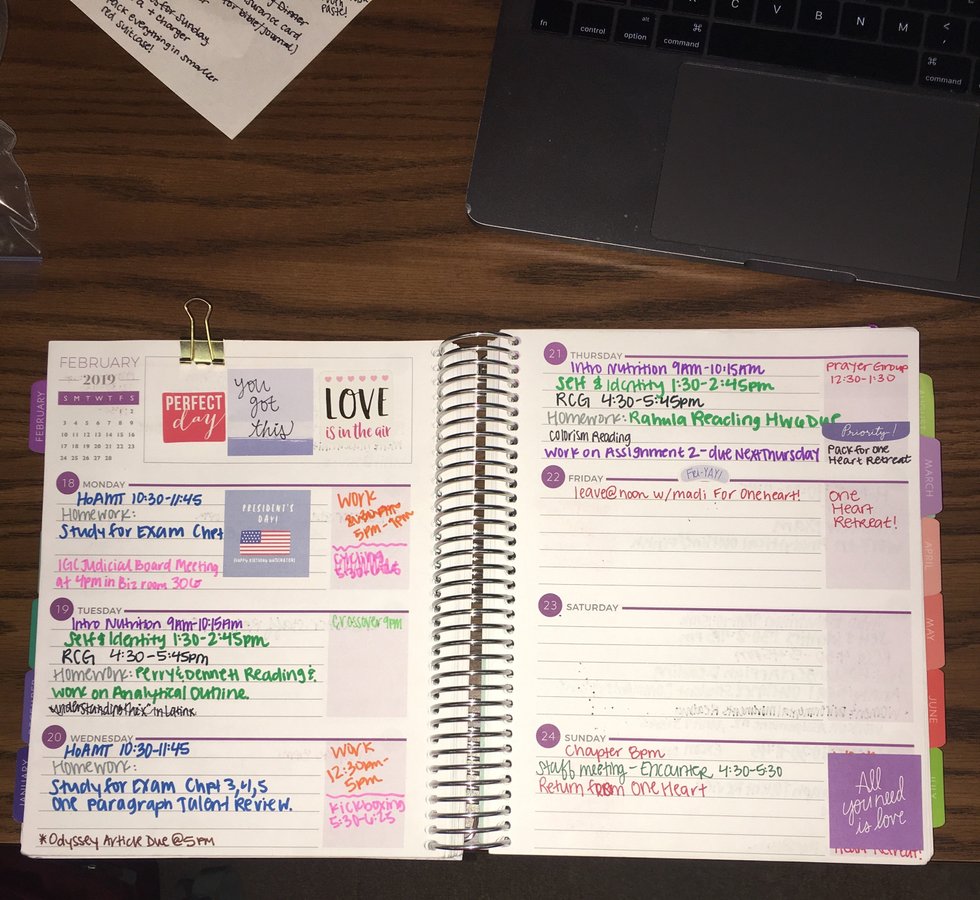 Dinner
insurance card
for bible/journal)
for Sunday
+ charger
pack everything in smaller
red suitcase!
paste!
fn
control
alt
option
⌘
command
C
V
B
N
M
<
,
⌘
command
FEBRUARY
2019
S M T W T F S
1 2
3 4 5 6 7 8 9
10 11 12 13 14 15 16
17 18 19 20 21 22 23
24 25 26 27 28
PERFECT
day
you
got
this
LOVE
is in the air
FEBRUARY
JANUARY
18 MONDAY
HoAMT 10:30-11:45
Homework:
Study for Exam Chpt
IGC Judicial Board Meeting
at 4pm in Biz room 306
PRESIDENT'S
DAY!
HAPPY BIRTHDAY WASHINGTON!
Work
5pm-9pm
cycling
19 TUESDAY
Intro Nutrition 9AM-10:15AM
Self & Identity 1:30-2:45pm
RCG 4:30-5:45pm
Homework: Perry & Dennett Reading &
work on Analytical Outline.
understanding the "x" in Latinx
Crossover 9pm
20 WEDNESDAY
HoAMT 10:30-11:45
Homework:
Study for Exam Chpt 3,4,5
One Paragraph Talent Review.
*Odyssey Article Due @ 5PM
Work
12:30pm-
5pm
Kickboxing
5:30-6:25
21 THURSDAY
Intro Nutrition 9AM-10:15AM
Self & Identity 1:30-2:45pm
RCG 4:30-5:45pm
Homework: Rahula Reading HW6 Due
Colorism Reading
work on Assignment 2-due Next Thursday
Prayer Group
12:30-1:30
Priority!
Pack for One
Heart Retreat
22 FRIDAY
Fri-YAY!
leave @ noon w/ madi For Oneheart!
One
Heart
Retreat!
23 SATURDAY
24 SUNDAY
Chapter 8pm
Staff meeting - Encounter 4:30-5:30
Return from One Heart
All
you need
is love
Heart Retreat!
MARCH
APRIL
MAY
JUNE
JULY